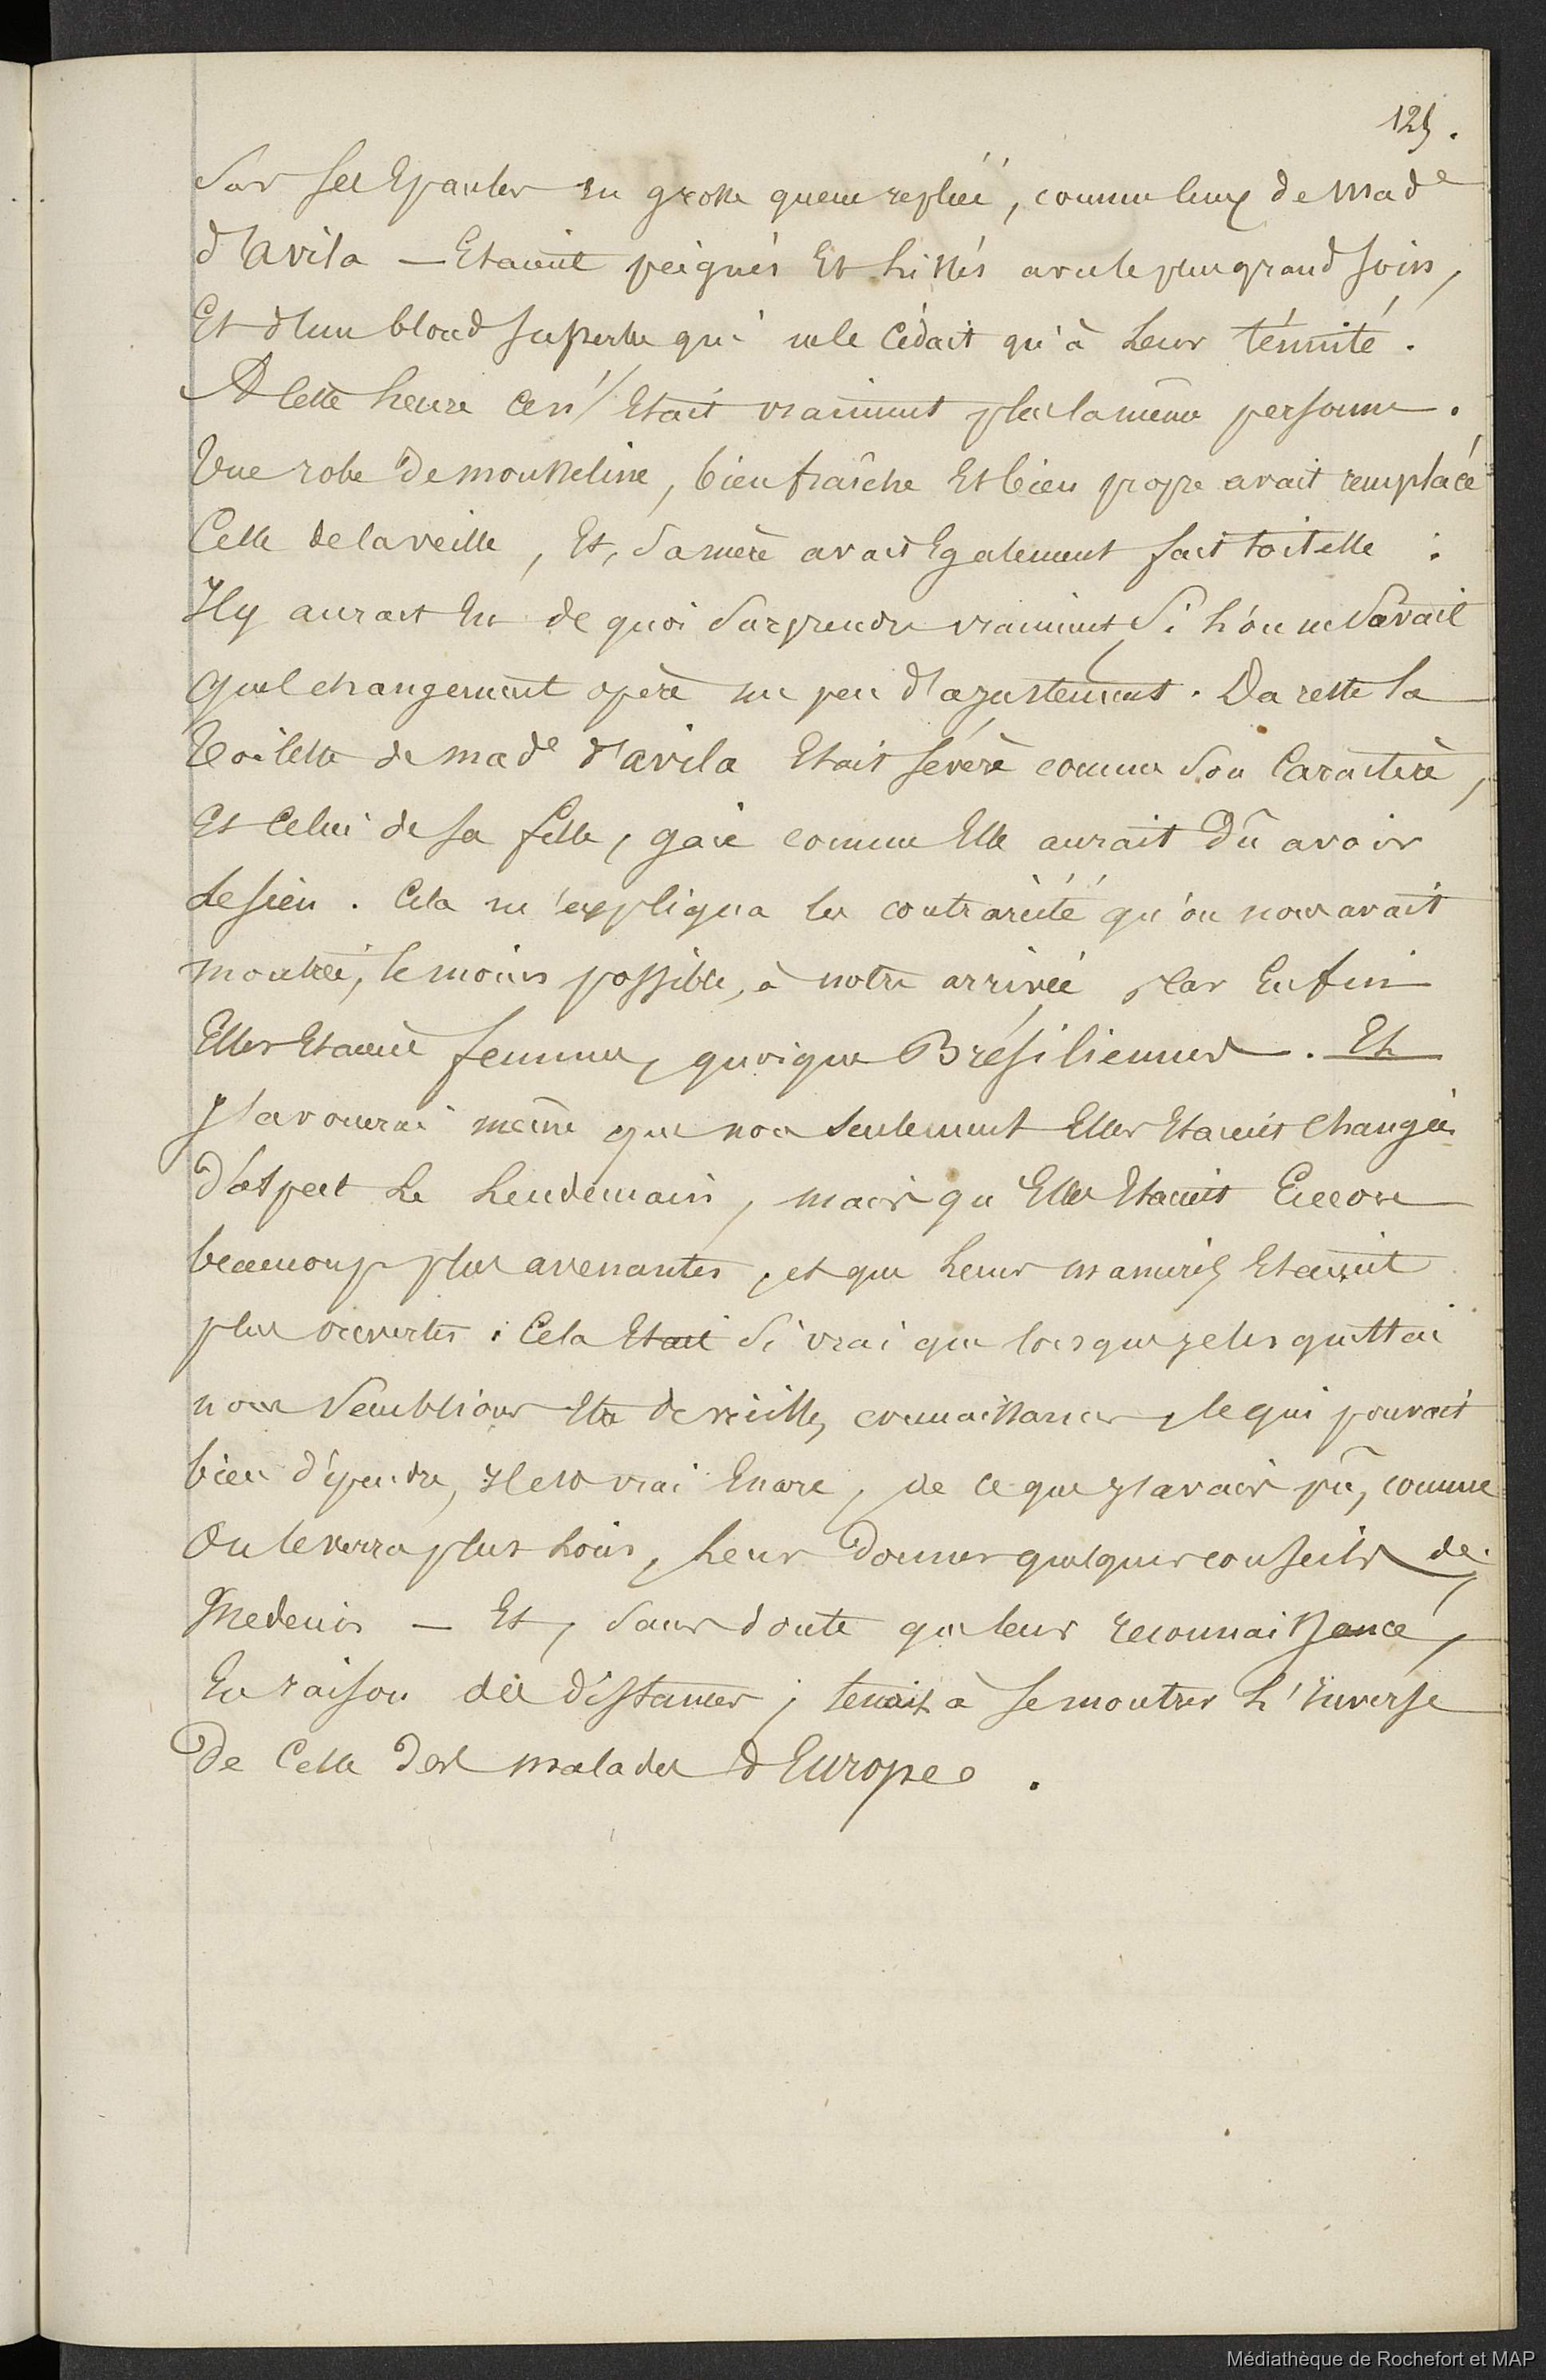 125.
Sur ses Epaules en grosse queue repliée, comme ceux de Made
d'avila — Etaient peignés Et lissés avec le plus grand soin,
Et d'un blond superbe qui ne le cédait qu'à leur ténuité.
A cette heure ce n'Etait vraiment plus la même personne.
Une robe de mousseline, bien fraîche Et bien propre avait remplacé
Celle de la veille, Et, Sa mère avait Egalement fait toilette :
Il y aurait Eu de quoi Surprendre vraiment Si l'on ne Savait
quel changement opère un peu d'ajustement. Du reste la
toilette de made d'avila Etait sévère comme Son Caractère,
Et Celui de sa fille, gaie comme Elle aurait dû avoir
le sien. Cela m'expliqua la contrariété qu'on nous avait
montrée, le moins possible, à notre arrivée, Car Enfin
Elles Etaient femmes, quoique Brésiliennes. Et
J'avouerai même que non Seulement Elles Etaient Changées
d'aspect le lendemain, mais qu'Elles Etaient Encore
beaucoup plus avenantes, et que leurs manières Etaient
plus ouvertes : Cela Etait Si vrai que lorsque je les quittai
nous Semblions Etre de vieilles connaissances, Ce qui pouvait
bien dépendre, Il est vrai Encore, de ce que J'avais pû, comme
On le verra plus loin, leur donner quelques conseils de
Medecin — Et, Sans doute que leur reconnaissance,
En raison des distances, tenait à se montrer l'inverse
De Celle des malades d'Europe.
Médiathèque de Rochefort et MAP